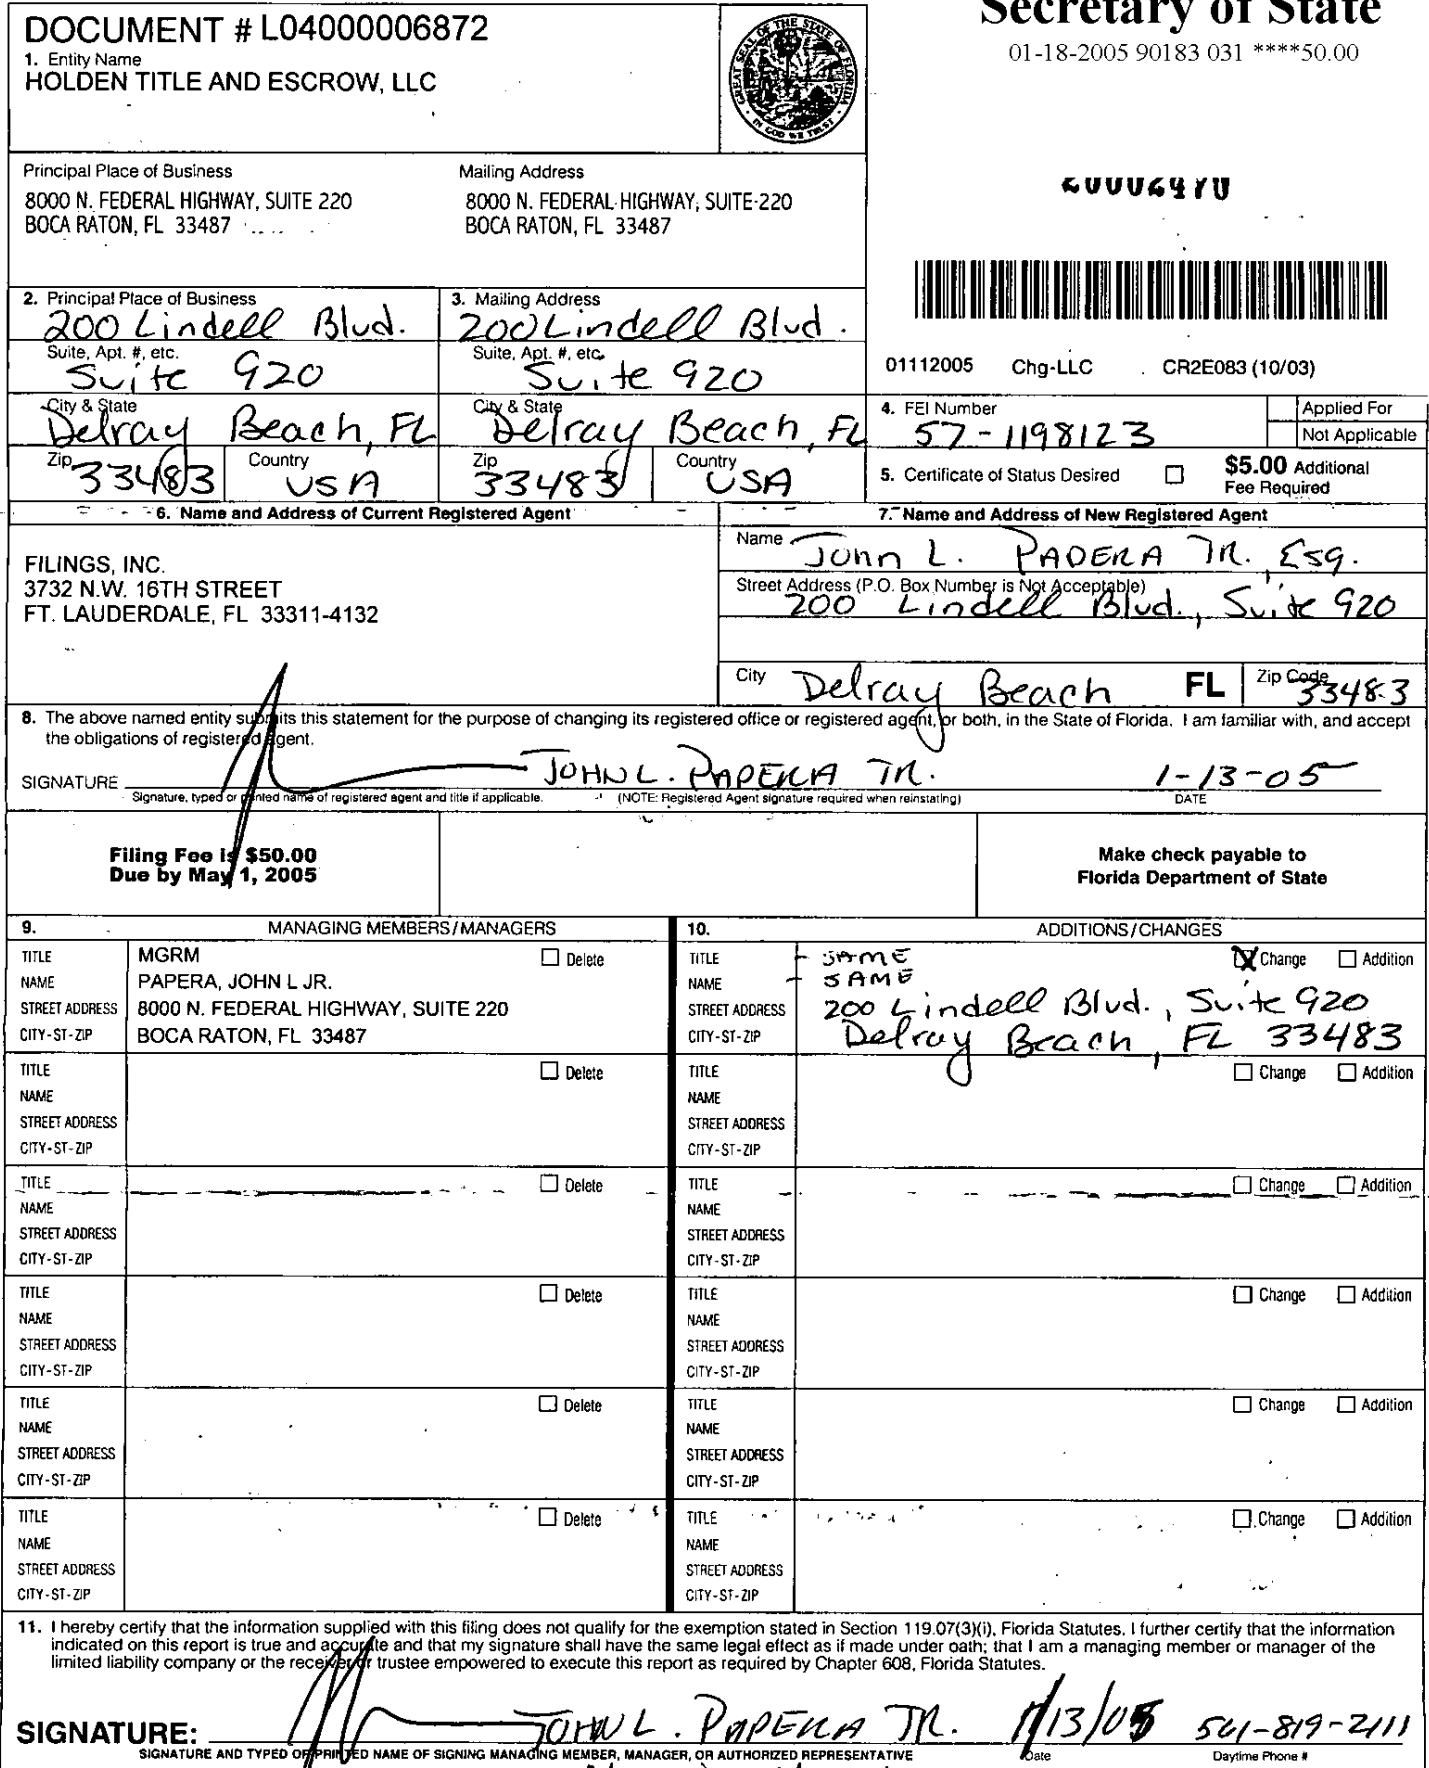 Secretary of State
01-18-2005 90183 031 ****50.00
DOCUMENT # L04000006872
1. Entity Name
HOLDEN TITLE AND ESCROW, LLC
GREAT SEAL OF THE STATE OF FLORIDA
IN GOD WE TRUST
Principal Place of Business
8000 N. FEDERAL HIGHWAY, SUITE 220
BOCA RATON, FL 33487
Mailing Address
8000 N. FEDERAL HIGHWAY, SUITE 220
BOCA RATON, FL 33487
2. Principal Place of Business
200 Lindell Blvd.
Suite, Apt. #, etc.
Suite 920
City & State
Delray Beach, FL
Zip 33483 Country USA
3. Mailing Address
200 Lindell Blvd.
Suite, Apt. #, etc.
Suite 920
City & State
Delray Beach, FL
Zip 33483 Country USA
01112005 Chg-LLC CR2E083 (10/03)
4. FEI Number
57-1198123
Applied For
Not Applicable
5. Certificate of Status Desired
$5.00 Additional
Fee Required
6. Name and Address of Current Registered Agent
FILINGS, INC.
3732 N.W. 16TH STREET
FT. LAUDERDALE, FL 33311-4132
7. Name and Address of New Registered Agent
Name John L. PAPERA JR., Esq.
Street Address (P.O. Box Number is Not Acceptable)
200 Lindell Blvd., Suite 920
City Delray Beach FL Zip Code 33483
8. The above named entity submits this statement for the purpose of changing its registered office or registered agent, or both, in the State of Florida. I am familiar with, and accept
the obligations of registered agent.
SIGNATURE JOHN L. PAPERA JR. 1-13-05
Signature, typed or printed name of registered agent and title if applicable. (NOTE: Registered Agent signature required when reinstating) DATE
Filing Fee is $50.00
Due by May 1, 2005
Make check payable to
Florida Department of State
9. MANAGING MEMBERS/MANAGERS
TITLE MGRM Delete
NAME PAPERA, JOHN L JR.
STREET ADDRESS 8000 N. FEDERAL HIGHWAY, SUITE 220
CITY-ST-ZIP BOCA RATON, FL 33487
TITLE Delete
NAME
STREET ADDRESS
CITY-ST-ZIP
TITLE Delete
NAME
STREET ADDRESS
CITY-ST-ZIP
TITLE Delete
NAME
STREET ADDRESS
CITY-ST-ZIP
TITLE Delete
NAME
STREET ADDRESS
CITY-ST-ZIP
TITLE Delete
NAME
STREET ADDRESS
CITY-ST-ZIP
10. ADDITIONS/CHANGES
TITLE - SAME Change Addition
NAME - SAME
STREET ADDRESS 200 Lindell Blvd., Suite 920
CITY-ST-ZIP Delray Beach, FL 33483
TITLE Change Addition
NAME
STREET ADDRESS
CITY-ST-ZIP
TITLE Change Addition
NAME
STREET ADDRESS
CITY-ST-ZIP
TITLE Change Addition
NAME
STREET ADDRESS
CITY-ST-ZIP
TITLE Change Addition
NAME
STREET ADDRESS
CITY-ST-ZIP
TITLE Change Addition
NAME
STREET ADDRESS
CITY-ST-ZIP
11. I hereby certify that the information supplied with this filing does not qualify for the exemption stated in Section 119.07(3)(i), Florida Statutes. I further certify that the information
indicated on this report is true and accurate and that my signature shall have the same legal effect as if made under oath; that I am a managing member or manager of the
limited liability company or the receiver or trustee empowered to execute this report as required by Chapter 608, Florida Statutes.
SIGNATURE: JOHN L. PAPERA JR. 1/13/05 561-819-2111
SIGNATURE AND TYPED OR PRINTED NAME OF SIGNING MANAGING MEMBER, MANAGER, OR AUTHORIZED REPRESENTATIVE Date Daytime Phone #